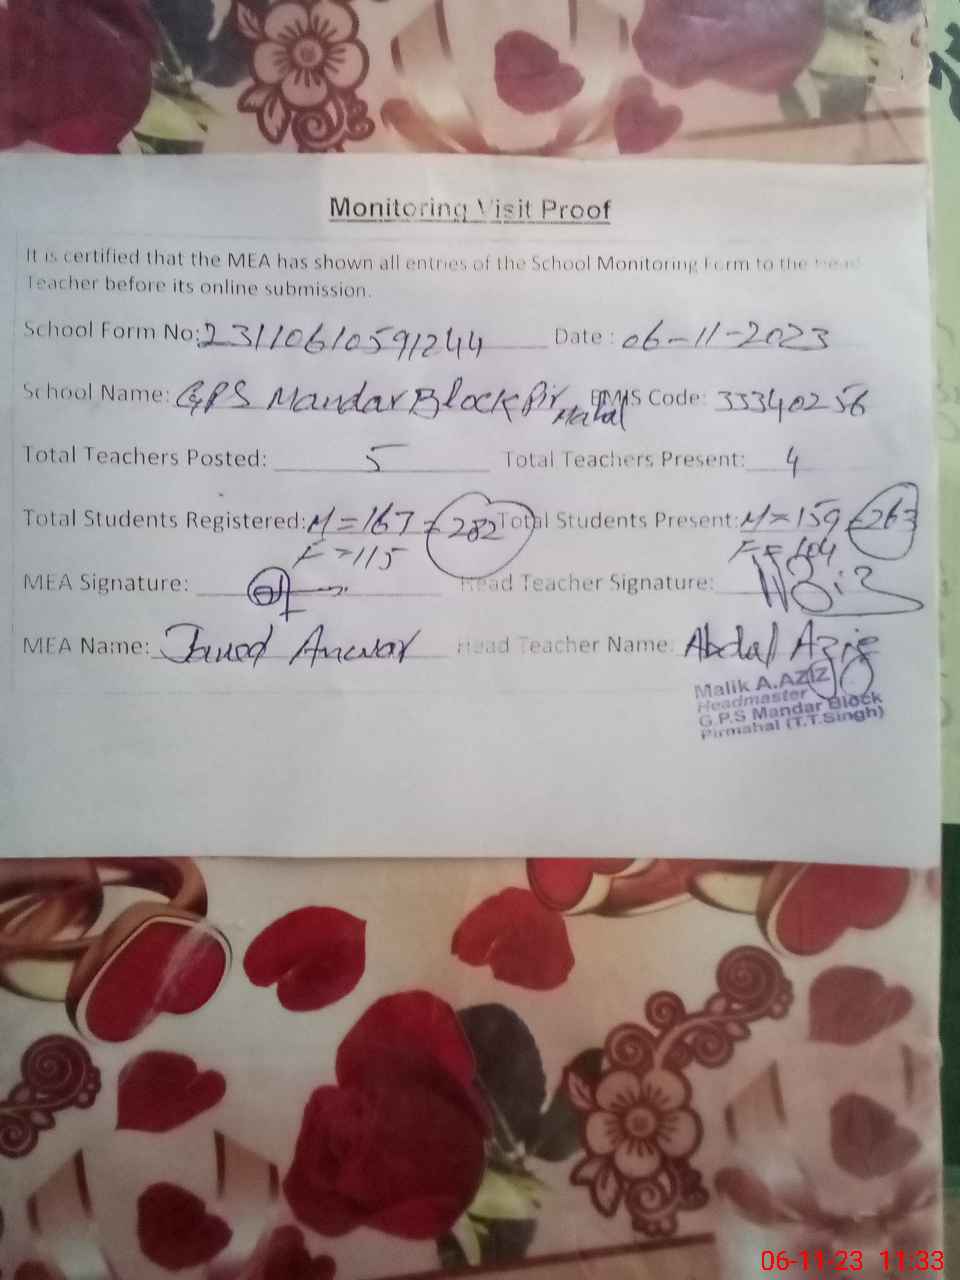 Monitoring Visit Proof
It is certified that the MEA has shown all entries of the School Monitoring Form to the Head
Teacher before its online submission.
School Form No: 23110610591244 Date : 06-11-2023
School Name: GPS Mandar Block Pir Mahal EMIS Code: 33340256
Total Teachers Posted: 5 Total Teachers Present: 4
Total Students Registered: M = 167 = 282 Total Students Present: M = 159 = 263
F = 115 F = 104
MEA Signature: Head Teacher Signature:
MEA Name: Javed Anwar Head Teacher Name: Abdal Aziz
Malik A.AZIZ
Headmaster
G.P.S Mandar Block
Pirmahal (T.T.Singh)
06-11-23 11:33